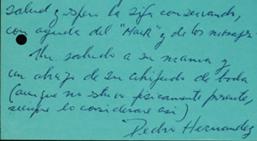 salud y espero la siga conservando,
con ayuda del "Mark" y de los menajes
Un saludo a su mamá y
un abrazo de su ahijado de boda
(aunque no estuvo físicamente presente,
siempre lo consideraré así)
Pedro Hernandez